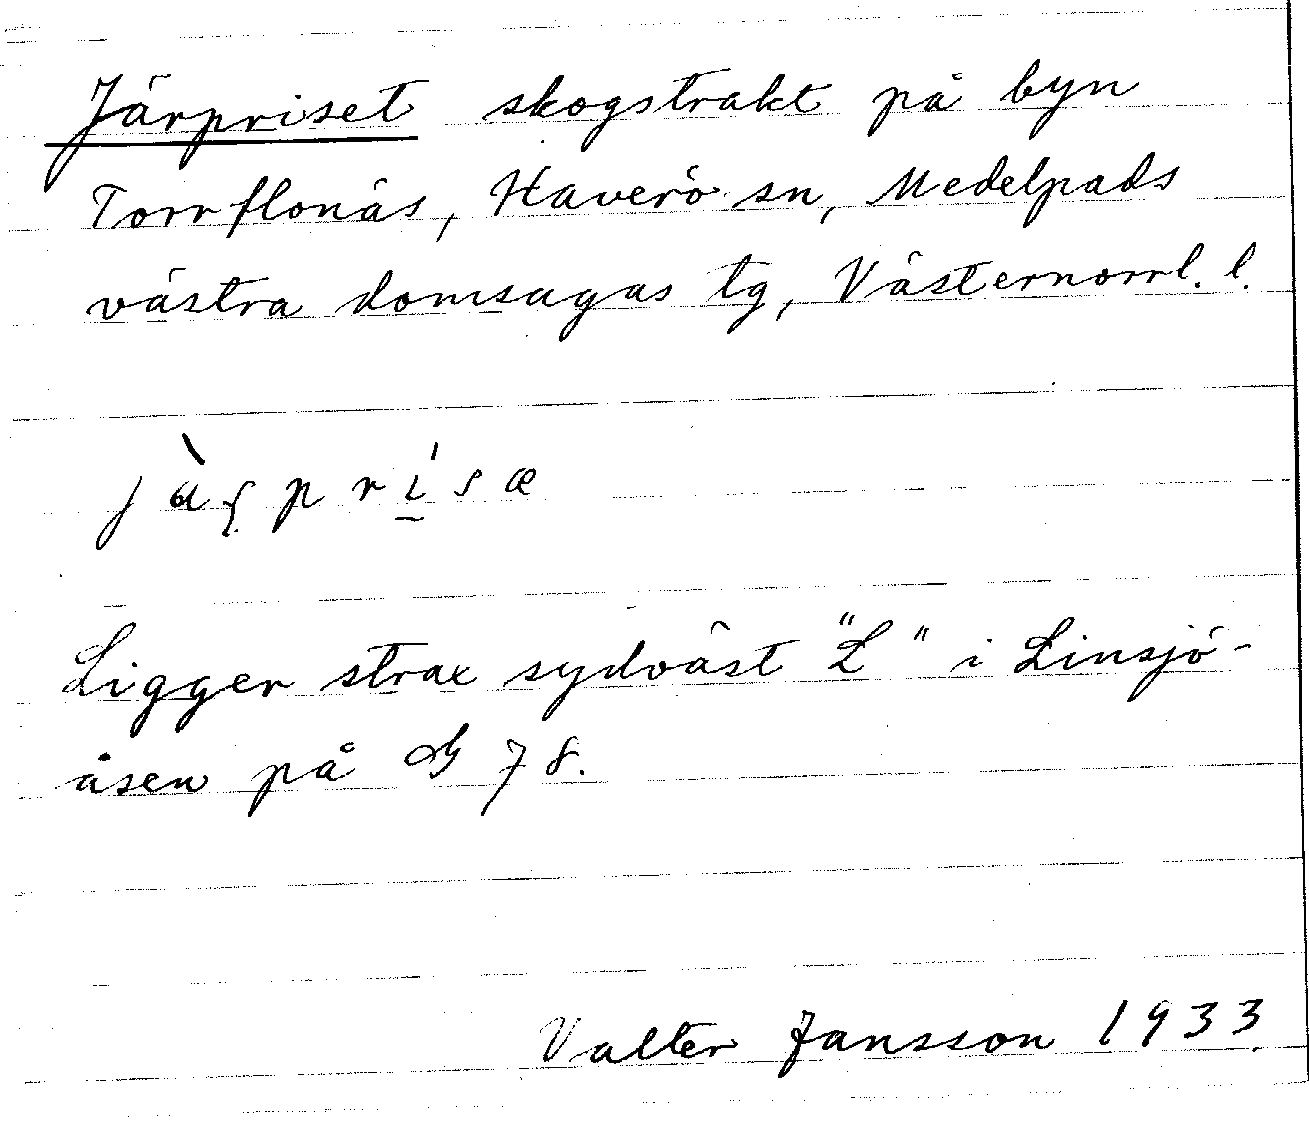 Järpriset skogstrakt på byn
Torrflonäs, Haverö sn, Medelpads
västra domsagas tg, Västernorrl. l.
Ligger strax sydväst "L" i Linsjö-
åsen på G 78.
Valter Jansson 1933.